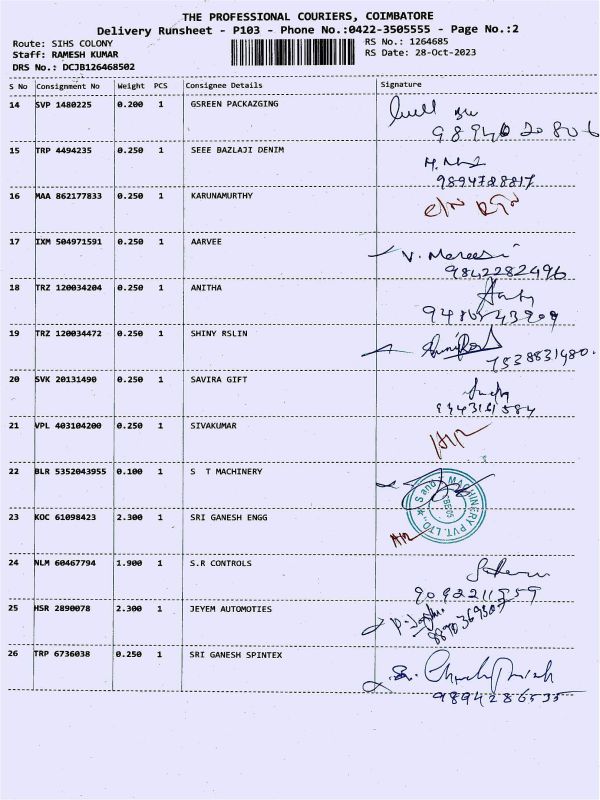 THE PROFESSIONAL COURIERS, COIMBATORE
Delivery Runsheet - P103 - Phone No.:0422-3505555 - Page No.:2
Route: SIHS COLONY RS No.: 1264685
Staff: RAMESH KUMAR RS Date: 28-Oct-2023
DRS No.: DCJB126468502
S No Consignment No Weight PCS Consignee Details Signature
14 SVP 1480225 0.200 1 GSREEN PACKAZGING
15 TRP 4494235 0.250 1 SEEE BAZLAJI DENIM
9894788817
16 MAA 862177833 0.250 1 KARUNAMURTHY
17 IXM 504971591 0.250 1 AARVEE
V. Mareesi
9842282496
18 TRZ 120034204 0.250 1 ANITHA
19 TRZ 120034472 0.250 1 SHINY RSLIN
7538831480.
20 SVK 20131490 0.250 1 SAVIRA GIFT
21 VPL 403104200 0.250 1 SIVAKUMAR
22 BLR 5352043955 0.100 1 S T MACHINERY
S and T MACHINERY PVT. LTD.,
23 KOC 61098423 2.300 1 SRI GANESH ENGG
24 NLM 60467794 1.900 1 S.R CONTROLS
9092211959
25 HSR 2890078 2.300 1 JEYEM AUTOMOTIES
26 TRP 6736038 0.250 1 SRI GANESH SPINTEX
9894286535